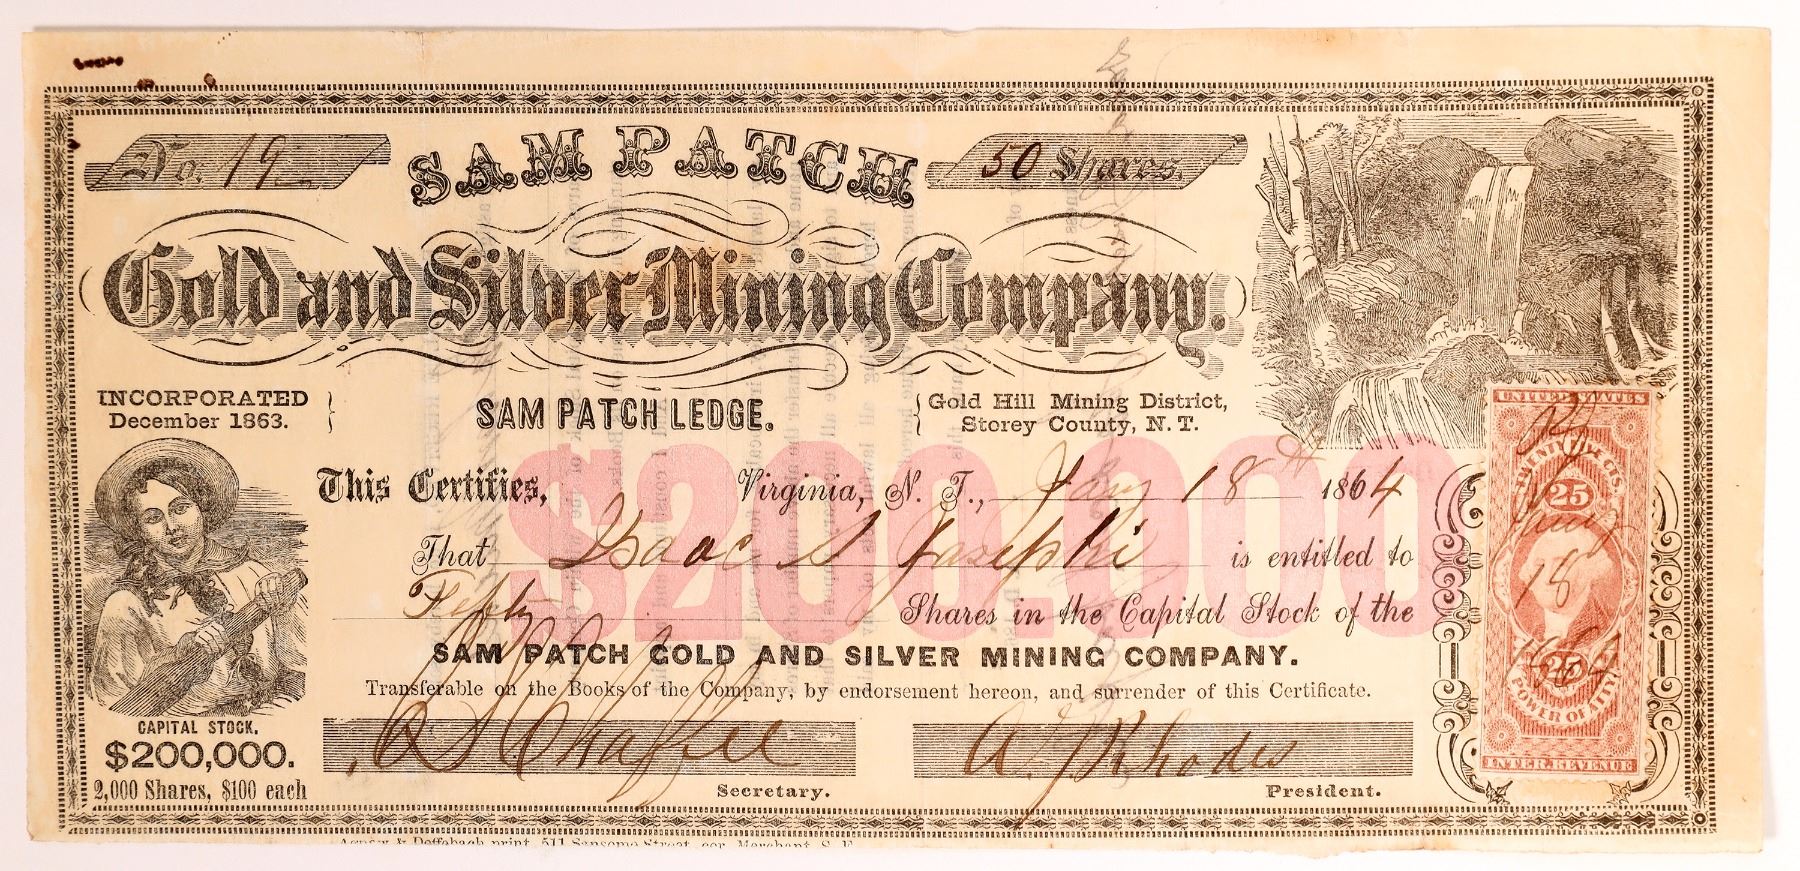 No. 19
SAM PATCH
50 Shares.
Gold and Silver Mining Company.
INCORPORATED
December 1863.
SAM PATCH LEDGE.
Gold Hill Mining District,
Storey County, N. T.
$200,000
This Certifies, Virginia, N. T., Jany 18th 1864
That Isaac S Josephi is entitled to
Fifty Shares in the Capital Stock of the
SAM PATCH GOLD AND SILVER MINING COMPANY.
Transferable on the Books of the Company, by endorsement hereon, and surrender of this Certificate.
CAPITAL STOCK.
$200,000.
2,000 Shares, $100 each
Chaffee
Secretary.
Rhodes
President.
UNITED STATES
TWENTY FIVE CTS.
25
Jany
18
1864
25
POWER OF ATT'Y
INTER. REVENUE
Agnew & Deffebach print, 511 Sansome Street, cor. Merchant, S. F.